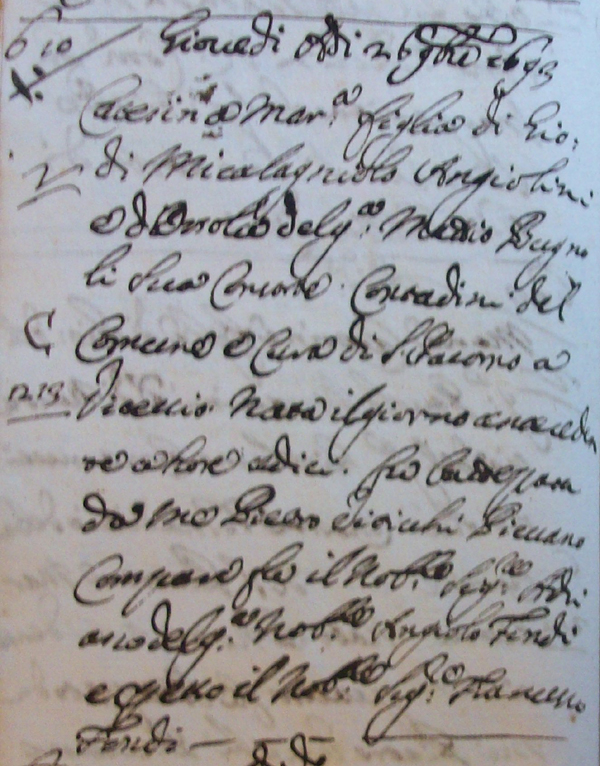 610 Giovedi Adi 26 9bre 1693
Caterina Mar.a figlia di Gio:
di Micalagniolo Angiolini
e d Orsola del q.m Matteo Bugno
li sua Consorte. Contadini del
C Comune e Cura di S Giacomo a
1213 Nata il giorno anteceden
te a hore dieci. fu battezzata
da me Pietro Pievano
Compare fu il Nob.le Sig.re Adri
ano del q.m Nob.le Angiolo Fondi
e per esso il Nob.le Sig.re Francesco
Fondi